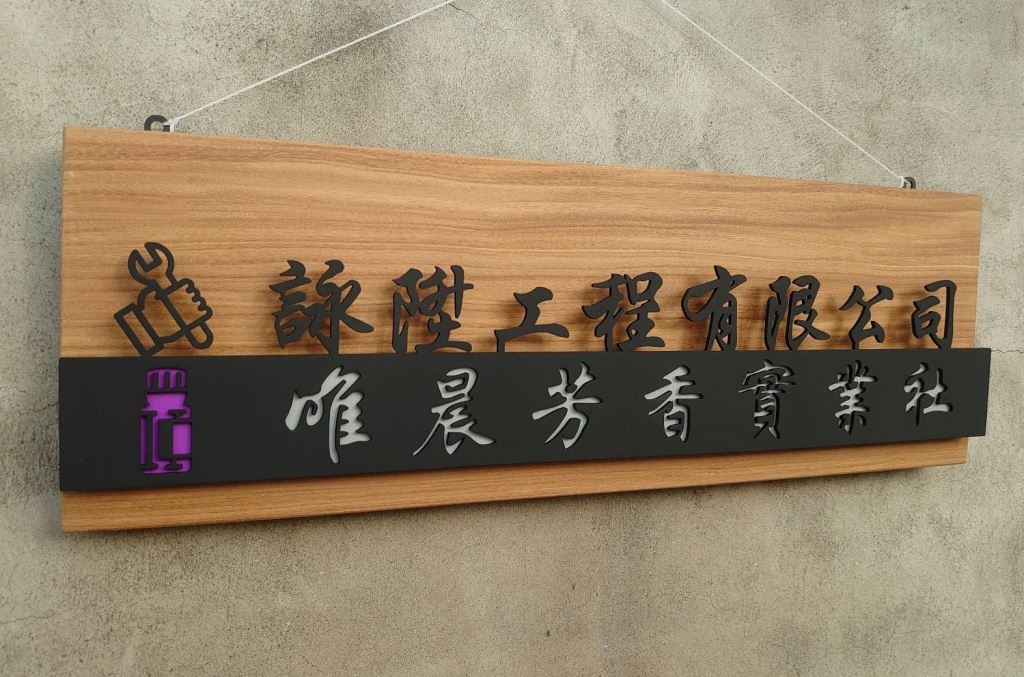 詠陞工程有限公司
唯晨芳香實業社